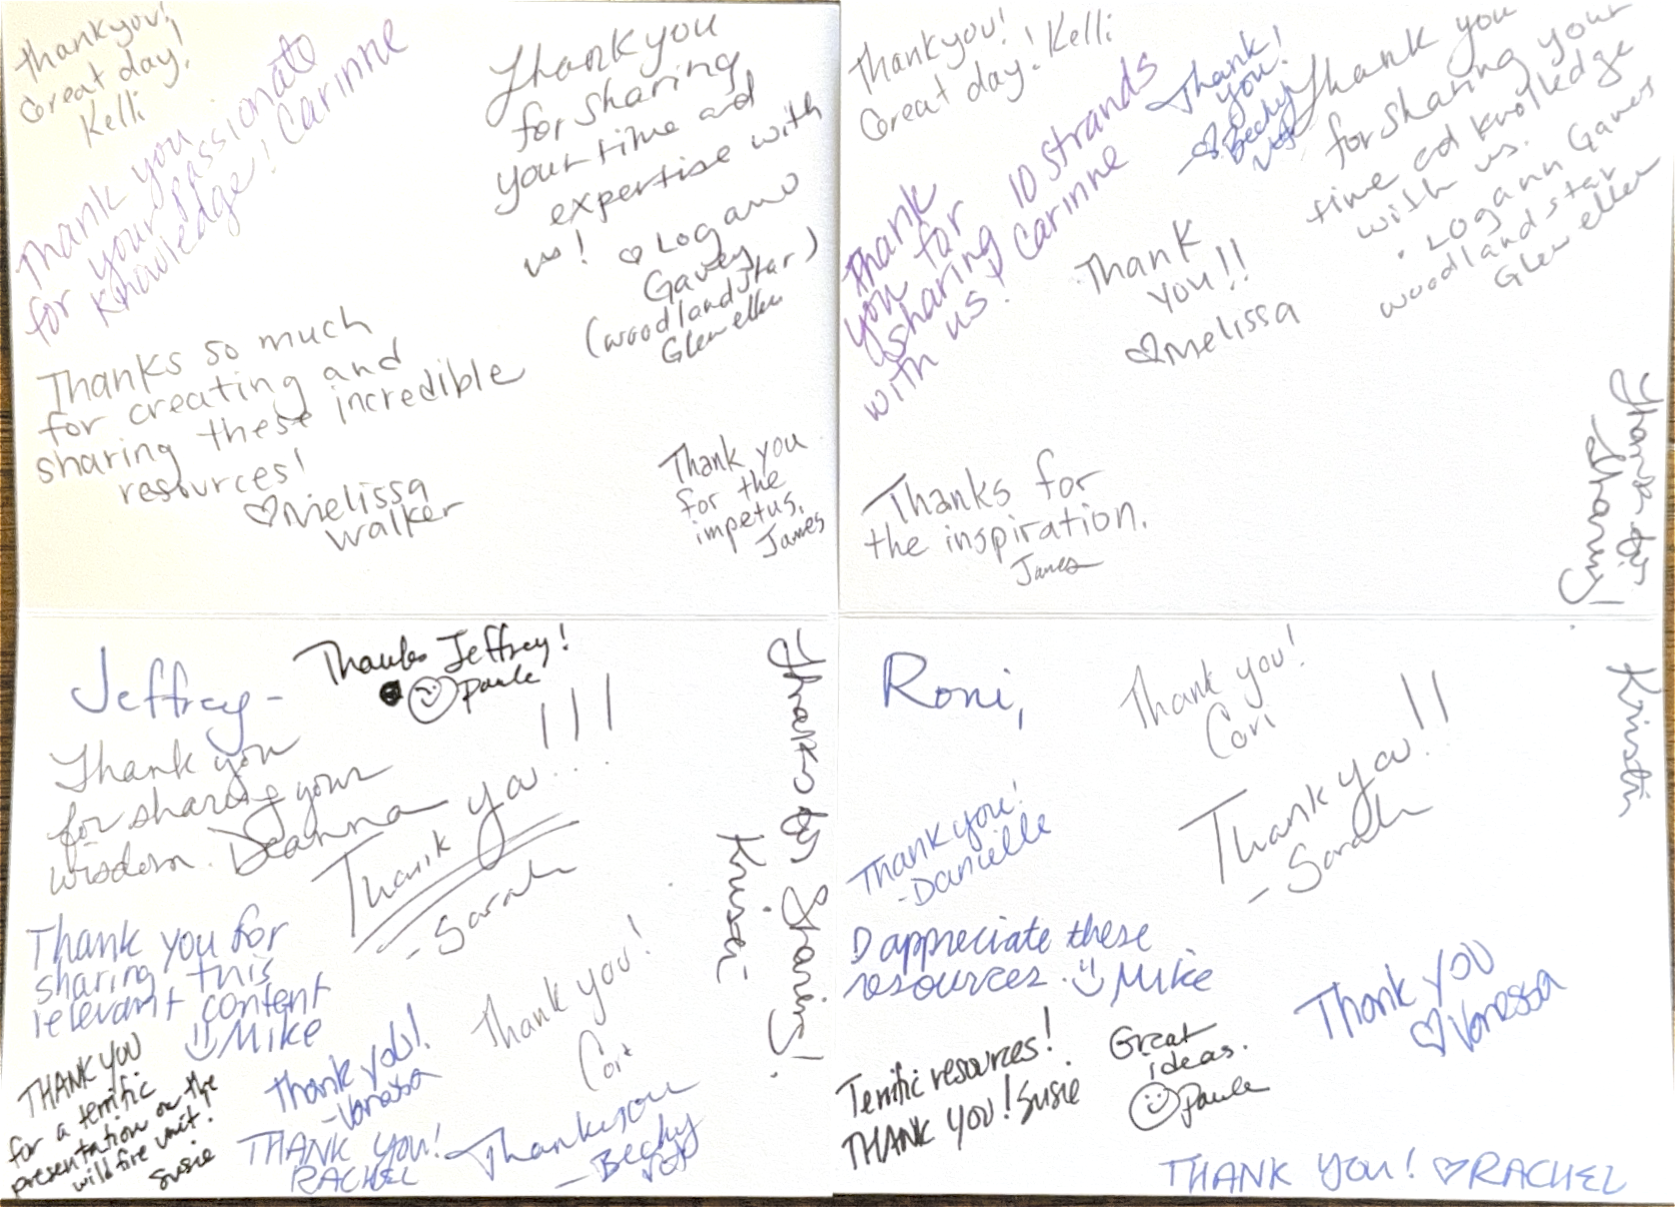 Thank you!
Great day!
Kelli
Thank you
for your passionate
knowledge! Carinne
Thank you
for sharing
your time and
expertise with
us!
(woodland star)
Thanks so much
for creating and
sharing these incredible
resources!
♡Melissa
Walker
Thank you
for the
impetus.
James
Jeffrey-
Thanks Jeffrey!
Paula
Thank you
for sharing your
wisdom. Deanna
Thank you!!!
-Sarah
Thanks for Sharing!
Kristi
Thank you for
sharing this
relevant content
Mike
THANK YOU
for a terrific
presentation on the
wildfire unit!
Susie
Thank you!
-Vanessa
Thank you!
Cori
THANK YOU!
RACHEL
Thank you
-Becky
Thank you!
Great day! Kelli
Thank
you for
sharing 10 strands
with us! Carinne
Thank
you!
Becky
Thank you
for sharing your
time ad knolkedge
with us.
woodland star
Thank
you!!
♡Melissa
Thanks for
the inspiration.
James
Thanks for
sharing!
Kristi
Roni,
Thank you!
Cori
Thank you!!
-Sarah
Thank you!
-Danielle
I appreciate these
resources. Mike
Terrific resources!
THANK YOU! Susie
Great
ideas.
Paula
Thank you
♡Vanessa
THANK YOU! ♡RACHEL